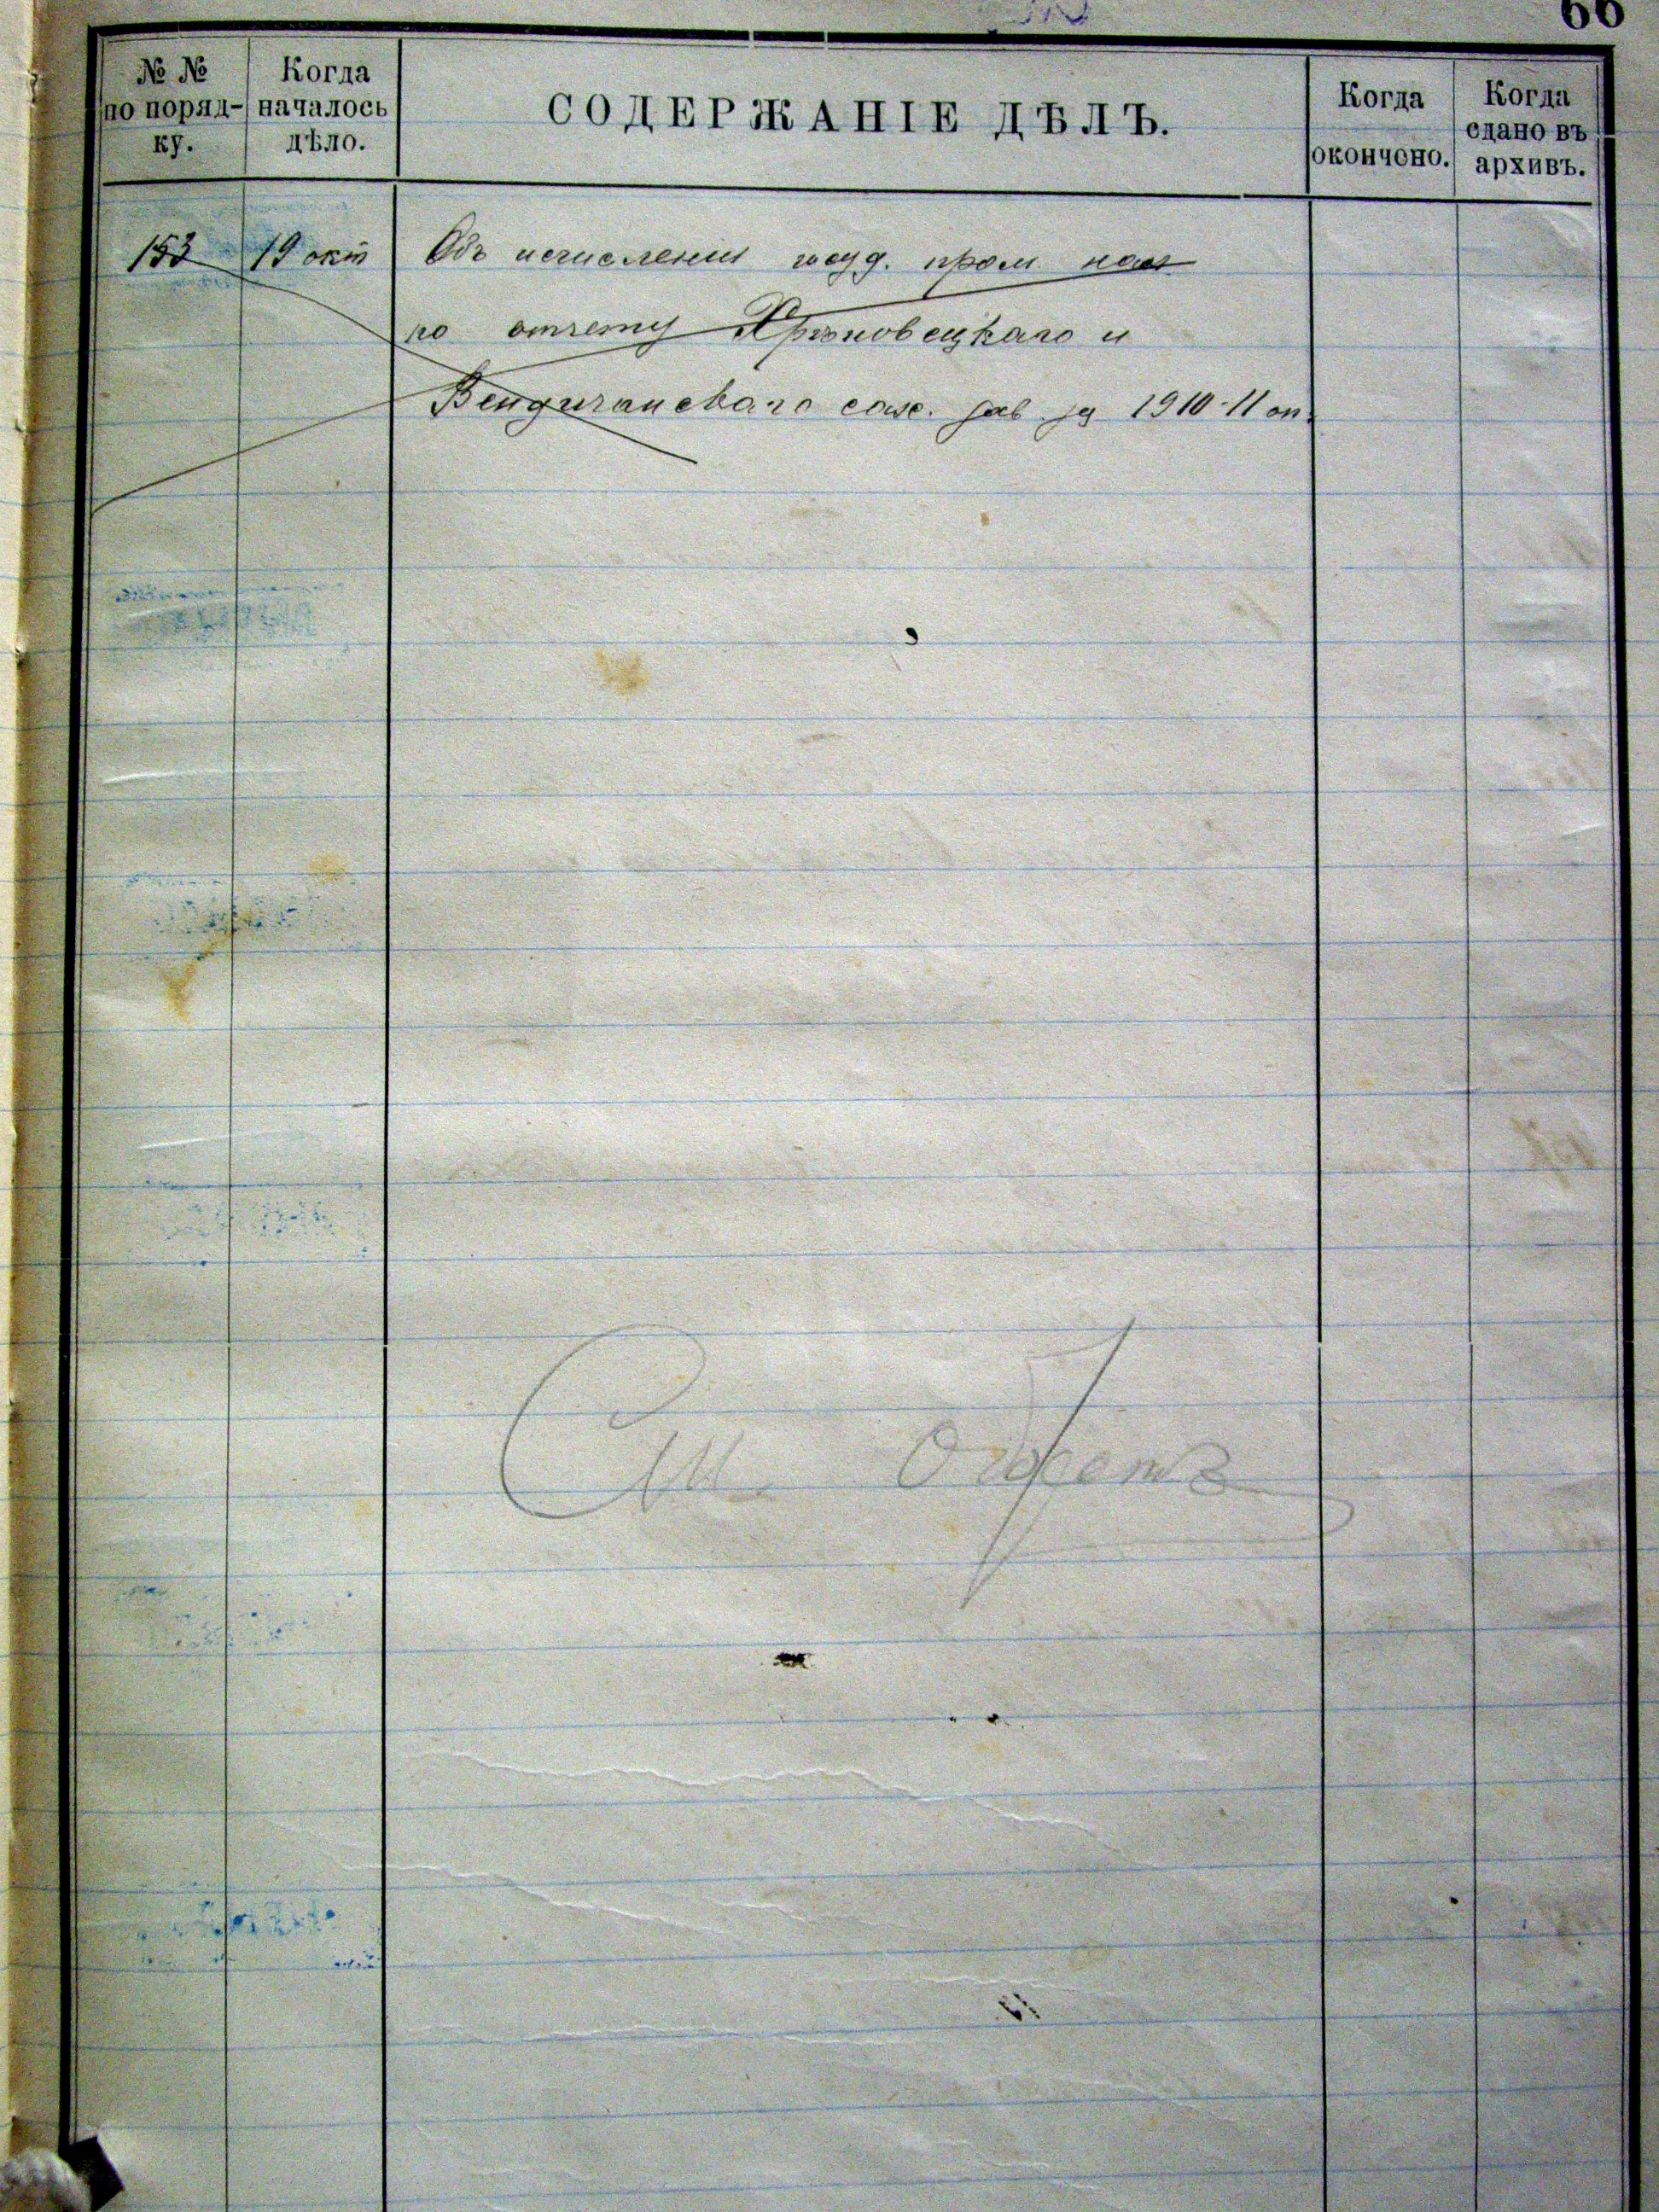 66
№ № по поряд-ку.
Когда началось дѣло.
СОДЕРЖАНІЕ ДѢЛЪ.
Когда окончено.
Когда сдано въ архивъ.
153 19 окт Объ исчислении госуд. пром. нал
по отчету Яроновецкаго и
Вендичанскаго сах. зав. за 1910-11 оп.
См.